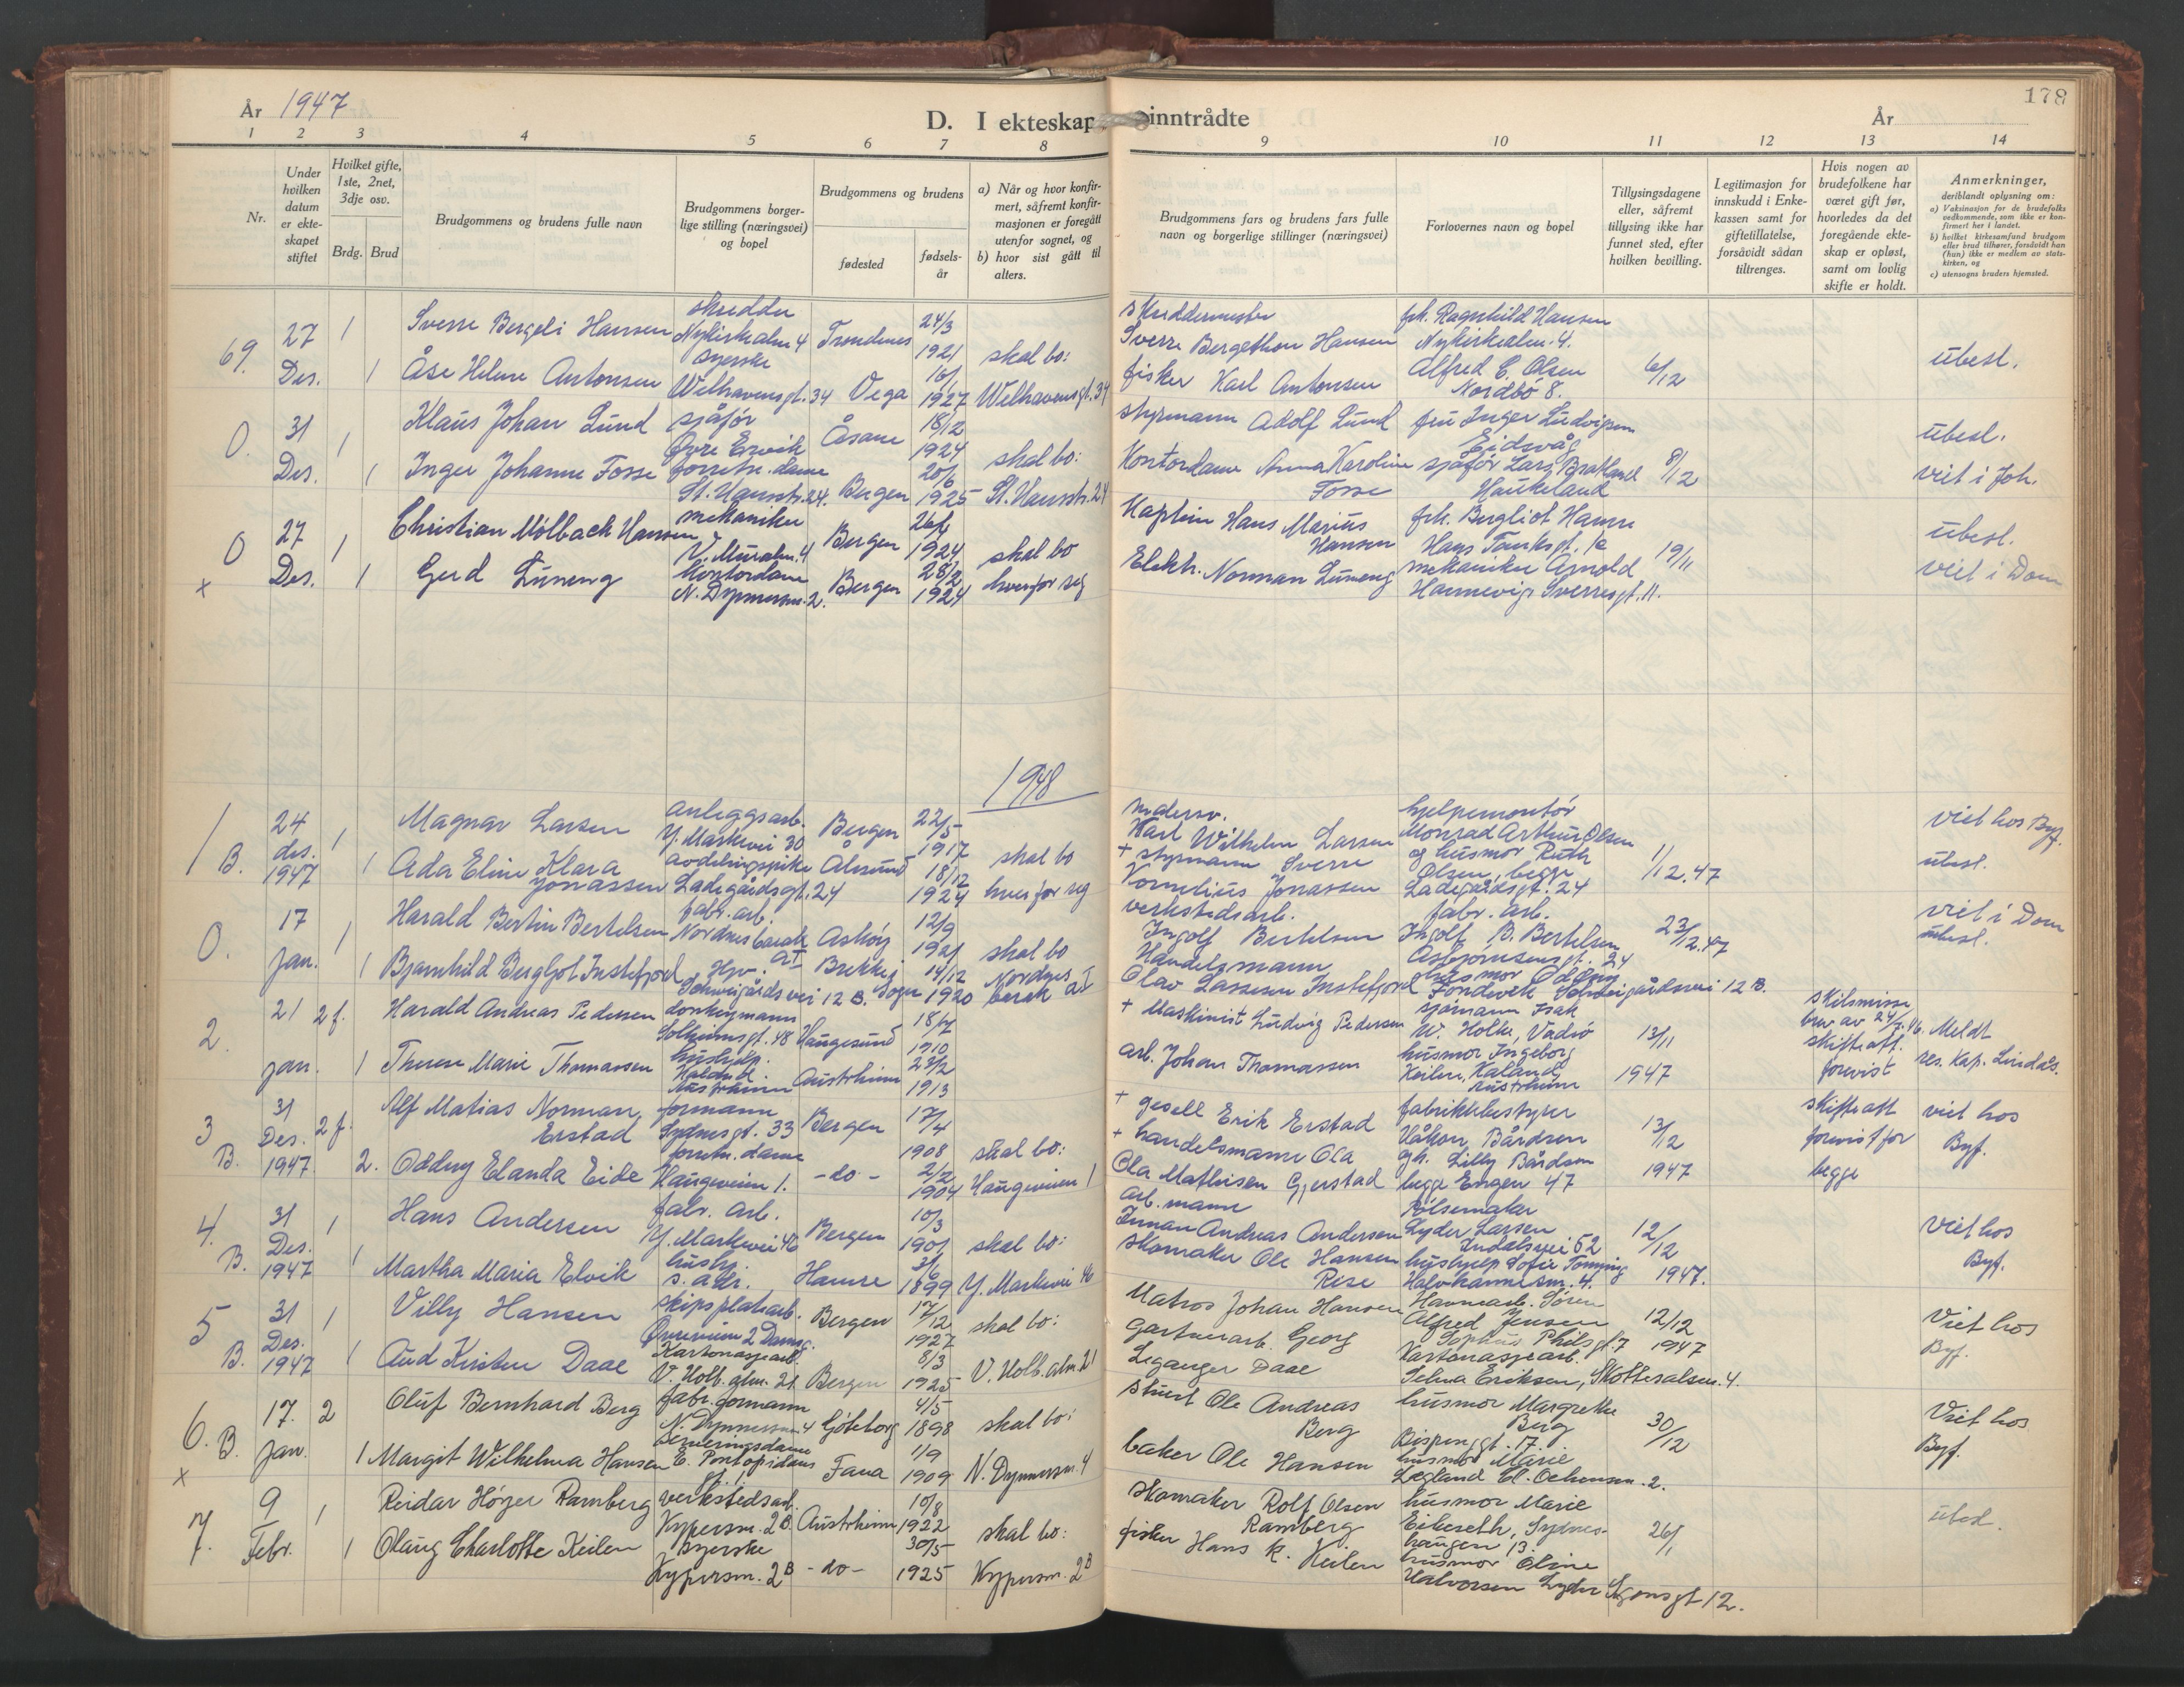 År 1947
D. I ekteskap inntrådte
År
178
1 2 3 4 5 6 7 8 9 10 11 12 13 14
Nr.
Under hvilken datum er ekteskapet stiftet
Hvilket gifte, 1ste, 2net, 3dje osv.
Brdg. Brud
Brudgommens og brudens fulle navn
Brudgommens borgerlige stilling (næringsvei) og bopel
Brudgommens og brudens
fødested
fødselsår
a) Når og hvor konfirmert, såfremt konfirmasjonen er foregått utenfor sognet, og
b) hvor sist gått til alters.
Brudgommens fars og brudens fars fulle navn og borgerlige stillinger (næringsvei)
Forlovernes navn og bopel
Tillysingsdagene eller, såfremt tillysing ikke har funnet sted, efter hvilken bevilling.
Legitimasjon for innskudd i Enkekassen samt for giftetillatelse, forsåvidt sådan tiltrenges.
Hvis nogen av brudefolkene har været gift før, hvorledes da det foregående ekteskap er opløst, samt om lovlig skifte er holdt.
Anmerkninger, deriblandt oplysning om:
a) Vaksinasjon for de brudefolks vedkommende, som ikke er konfirmert her i landet.
b) hvilket kirkesamfund brudgom eller brud tilhører, forsåvidt han (hun) ikke er medlem av statskirken, og
c) utensogns bruders hjemsted.
69. 27 Des. 1 Sverre Bergeli Hansen skredder Nykirkealm 4 Trondenes 24/3 1921 skal bo: skreddermester Sverre Bergethon Hansen frk. Ragnhild Hansen Nykirkealm. 4. 6/12 ubesl.
1 Åse Helene Antonsen syerske Welhavensgt. 34 Vega 1927 Welhavensgt. 34 fisker Karl Antonsen Alfred C. Olsen Nordbö 8.
0. 31 Des. 1 Klaus Johan Lund sjåfør Øvre Ervik Åsane 18/12 1924 skal bo: styrmann Adolf Lund fru Inger Ludvigsen Eidsvåg 8/12 ubesl.
1 Inger Johanne Fosse forretn. dame St. Hansstr. 24. Bergen 20/6 1925 St. Hansstr. 24 Kontordame Anna Karoline Fosse sjåför Lars Bratland Haukeland viet i Joh.
0 x 27 Des. 1 Christian Mølbach Hansen mekaniker V. Muralm. 4 Bergen 1924 skal bo Kaptein Hans Marius Hansen frk. Bergliot Hamre Hans Tanksgt. 19/11 ubesl.
1 Gerd Luneng Kontordame N. Dypmersm. 2. Bergen 28/2 1924 hver for seg Elektr. Norman Luneng mekaniker Arnold Hannevig Sverresgt. 11. viet i Dom
1948
1 B. 24 des. 1947 1 Magnar Larsen anleggsarb. Y. Markevei 30 Bergen 22/5 1917 skal bo Karl Wilhelm Larsen hjelpemontör Monrad Arthur Olsen og husmor Ruth Olsen, begge Ladegårdsgt. 24 1/12.47 viet hos Byf.
1 Ada Eline Klara Jonassen avdelingspike Ladegårdsgt. 24 Ålesund 18/12 1924 hver for seg + styrmann Sverre Kornelius Jonassen ubesl.
0. 17 jan. 1 Harald Bertin Bertelsen fabr. arb. Nordnesbarak A I Askøy 12/9 1921 skal bo verkstedsarb. Ingolf Bertelsen fabr. arb. Ingolf B. Bertelsen Asbjørnsensgt. 24 23/12.47 viet i Dom ubesl.
1 Bjarnhild Bergljot Instefjord Hjv. Schweigårdsvei 12 B. Brekke Sogn 14/12 1920 Nordnes barak A I Handelsmann Olav Lassesen Instefjord husmor Oddny Schweigårdsvei 12 B.
2. 21 jan. 2 f. Harald Andreas Pedersen donkeymann Solheimsgt. 48 Haugesund 18/7 1910 + Maskinist Ludvig Pedersen sjömann Isak W. Holke, Vadsö 13/11 1947 skilsmisse bev. av 24/7.46. skifteatt. forevist Meldt res. kap. Lindås.
1 Therese Marie Thomassen hushjelp. Austrheim Austrheim 23/2 1913 arb. Johan Thomassen husmor Ingeborg Keilen, Kaland, Austrheim
3 B. 31 Des. 1947 2 f. Alf Matias Norman Erstad formann Sydnesgt. 33 Bergen 17/4 1908 skal bo: + gesell Erik Erstad fabrikkbestyrer Håkon Bårdsen 13/12 1947 skifteatt forevist for begge viet hos Byf.
2. Oddny Elanda Eide forretn. dame Haugeveien 1. -do- 2/2 1904 Haugeveien 1 + handelsmann Ola Ola Mathisen Gjerstad gh. Lilly Bårdsen begge Engen 47
4. B. 31 Des. 1947 1 Hans Andersen fabr. arb. Y. Markevei 46 Bergen 10/3 1901 skal bo: arb. mann Andreas Andersen Pölsemaker Lyder Larsen Indalsvei 52 12/12 1947. Viet hos Byf.
1 Martha Maria Elvik hushj. s. adr. Hamre 1899 Y. Markevei 46 Skomaker Ole Hansen Rise hushjelp Sofie Tonning Halvkannesm. 4.
5 B. 31 Des. 1947 1 Villy Hansen skipsplatearb. 2 Damsg. Bergen 17/12 1927 skal bo: Matros Johan Hansen Havnearb. Sören Alfred Jensen 12/12 1947 Viet hos Byf.
1 Aud Kirsten Daae Kartonasjearb. V. Holb. alm. 21 Bergen 8/3 1925 V. Holb. alm 21 Gartnerarb. Georg Leganger Daae Kartonasjearb. Selma Eriksen, Skottesalsm. 4.
6. B. x 17. jan. 2 Oluf Bernhard Berg fabr. formann N. Dypmersm. 4 Göteborg 4/5 1898 skal bo: stuert Ole Andreas Berg husmor Margrethe Berg Bispenggt. 17 30/12 Viet hos Byf.
1 Margit Wilhelma Hansen Serveringsdame E. Pontopidans gt. 1 Fana 1/9 1909 N. Dypmersm. 4 baker Ole Hansen husmor Marie Cl. Ockensm. 2.
7. 9 Febr. 1 Reidar Höyer Ramberg verkstedsarb. Kypersm. 2B. Austrheim 10/8 1922 skal bo: Skomaker Rolf Olsen Ramberg husmor Marie Eikeseth, Sydneshaugen 13. 26/1 ubesl.
1 Olaug Charlotte Keilen Syerske Kypersm. 2B -do- 30/5 1925 Kypersm. 2B fisker Hans K. Keilen husmor Oline Halvorsen Lyder Sagensgt 12.